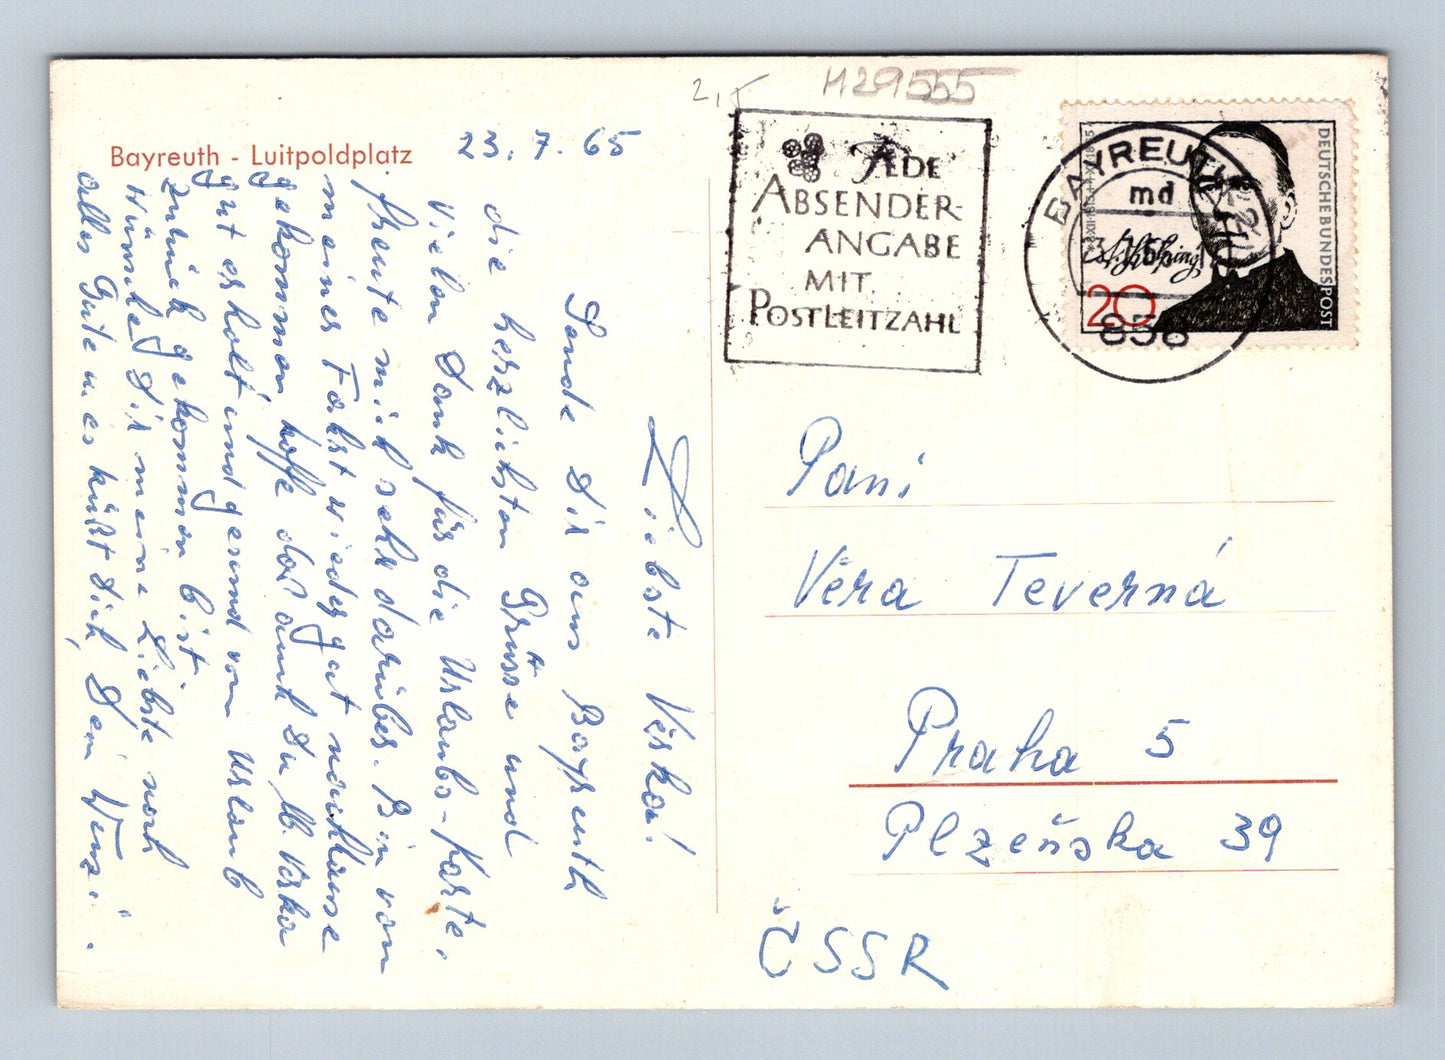 Bayreuth - Luitpoldplatz
23. 7. 65
Liebste Věrka!
Sende Dir aus Bayreuth
die herzlichsten Grüsse und
vielen Dank für die Urlaubs-Karte,
freute mich sehr darüber. Bin von
meiner Fahrt wieder gut nachHause
gekommen, hoffe das auch Du lb. Verka
gut erholt und gesund vom Urlaub
zurück gekommen bist.
Wünsche Dir meine Liebste noch
alles Gute u. es küßt Dich, Dein
2,5
H29555
JEDE
ABSENDER-
ANGABE
MIT
POSTLEITZAHL
BAYREUTH
md
858
DEUTSCHE BUNDESPOST
A. Kolping
20
Pani
Věra Teverná
Praha 5
Plzeňska 39
ČSSR